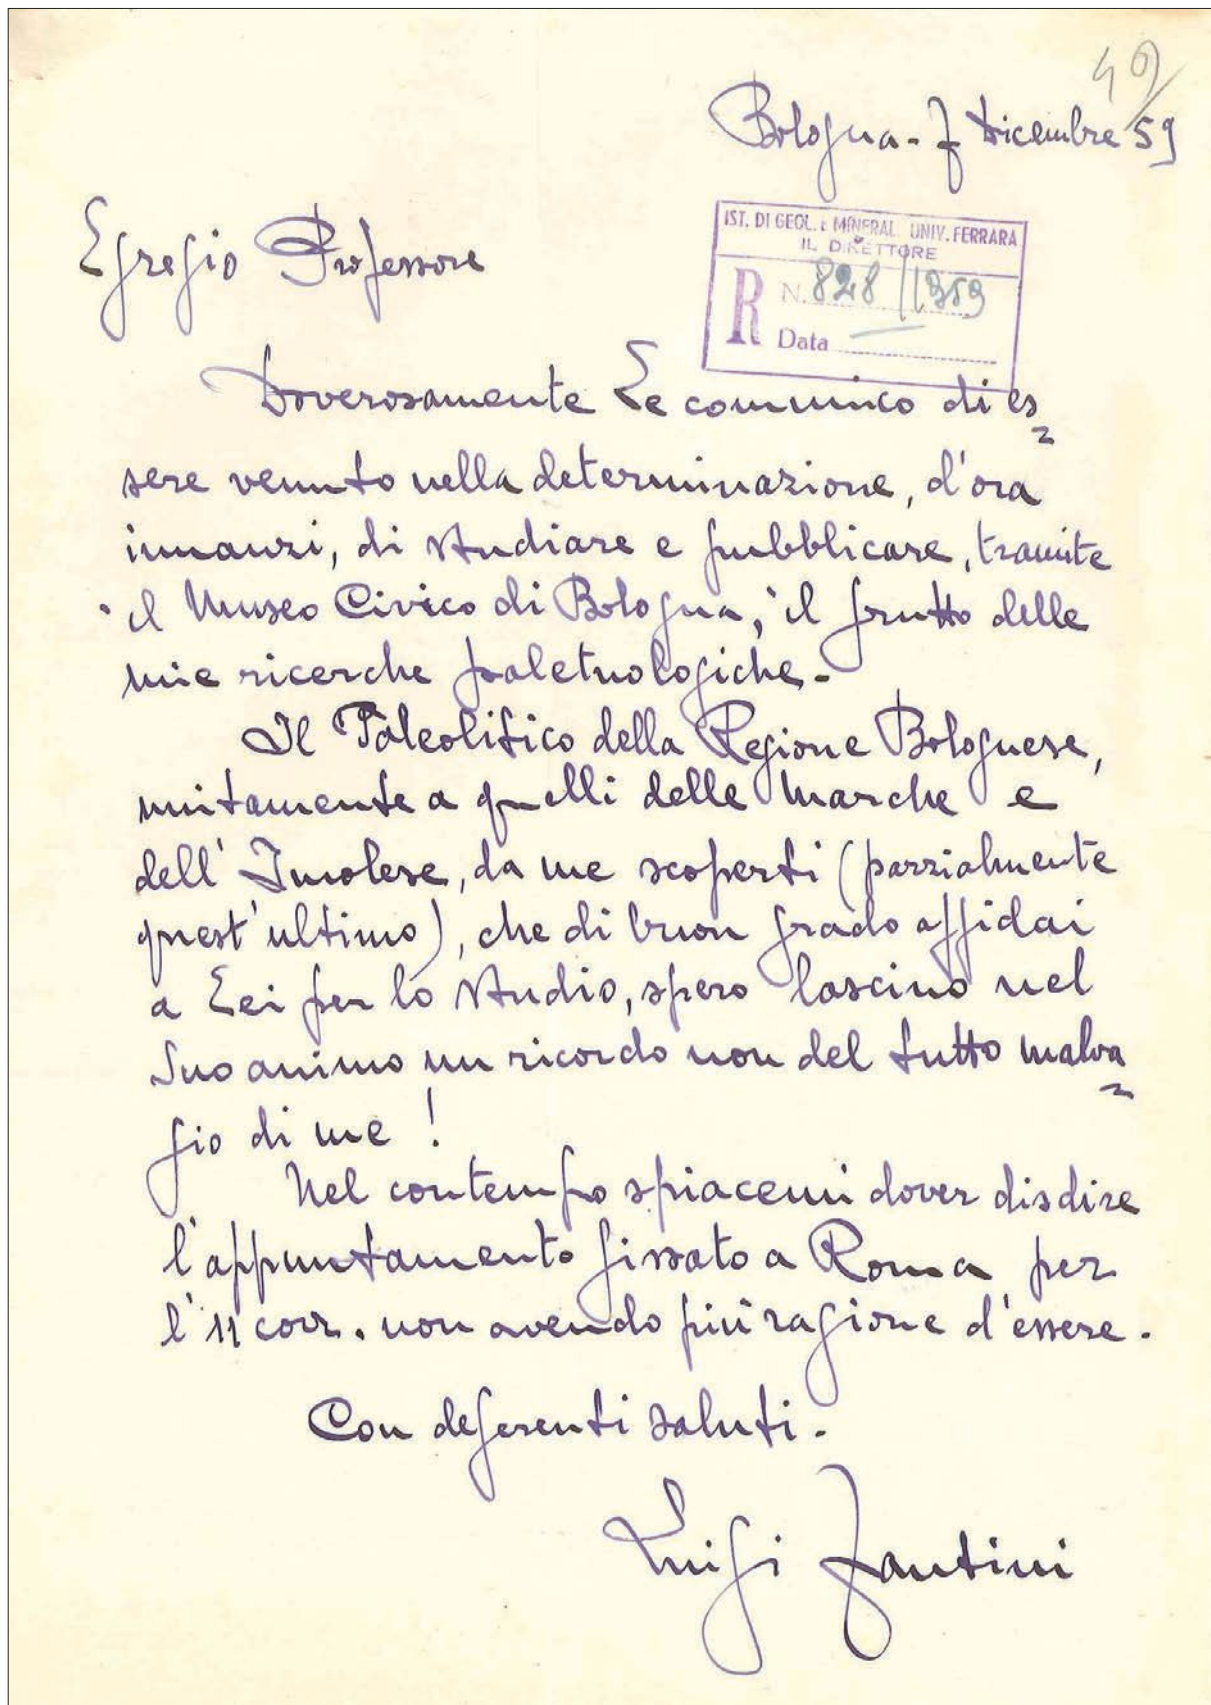 49
Bologna - 7 Dicembre 59
IST. DI GEOL. E MINERAL. UNIV. FERRARA
IL DIRETTORE
R N. 828/1959
Data
Egregio Professore
Doverosamente Le comunico di es=
sere venuto nella determinazione, d'ora
innanzi, di studiare e pubblicare, tramite
il Museo Civico di Bologna, il frutto delle
mie ricerche paletnologiche.-
Il Paleolitico della Regione Bolognese,
unitamente a quelli delle Marche e
dell'Imolese, da me scoperti (parzialmente
quest'ultimo), che di buon grado affidai
a Lei per lo studio, spero lascino nel
Suo animo un ricordo non del tutto malva=
gio di me!
Nel contempo spiacemi dover disdire
l'appuntamento fissato a Roma per
l'11 corr. non avendo più ragione d'essere.
Con deferenti saluti.
Luigi Fantini